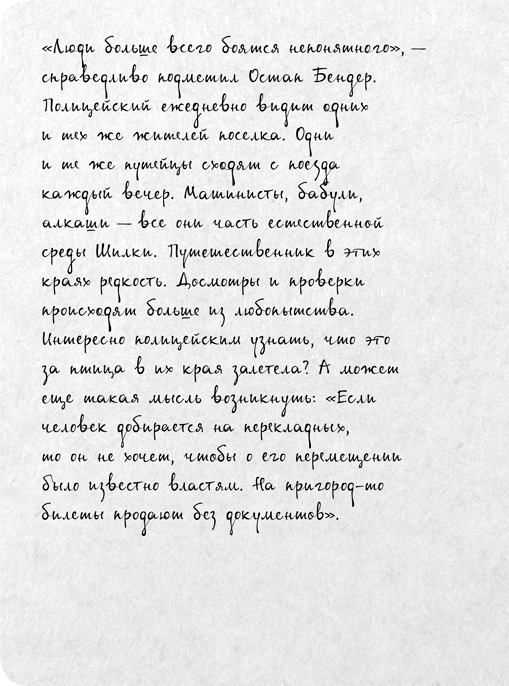 «Люди больше всего боятся непонятного», —
справедливо подметил Остап Бендер.
Полицейский ежедневно видит одних
и тех же жителей поселка. Одни
и те же путейцы сходят с поезда
каждый вечер. Машинисты, бабули,
алкаши — все они часть естественной
среды Шилки. Путешественник в этих
краях редкость. Досмотры и проверки
происходят больше из любопытства.
Интересно полицейским узнать, что это
за птица в их края залетела? А может
еще такая мысль возникнуть: «Если
человек добирается на перекладных,
то он не хочет, чтобы о его перемещении
было известно властям. На пригород-то
билеты продают без документов».